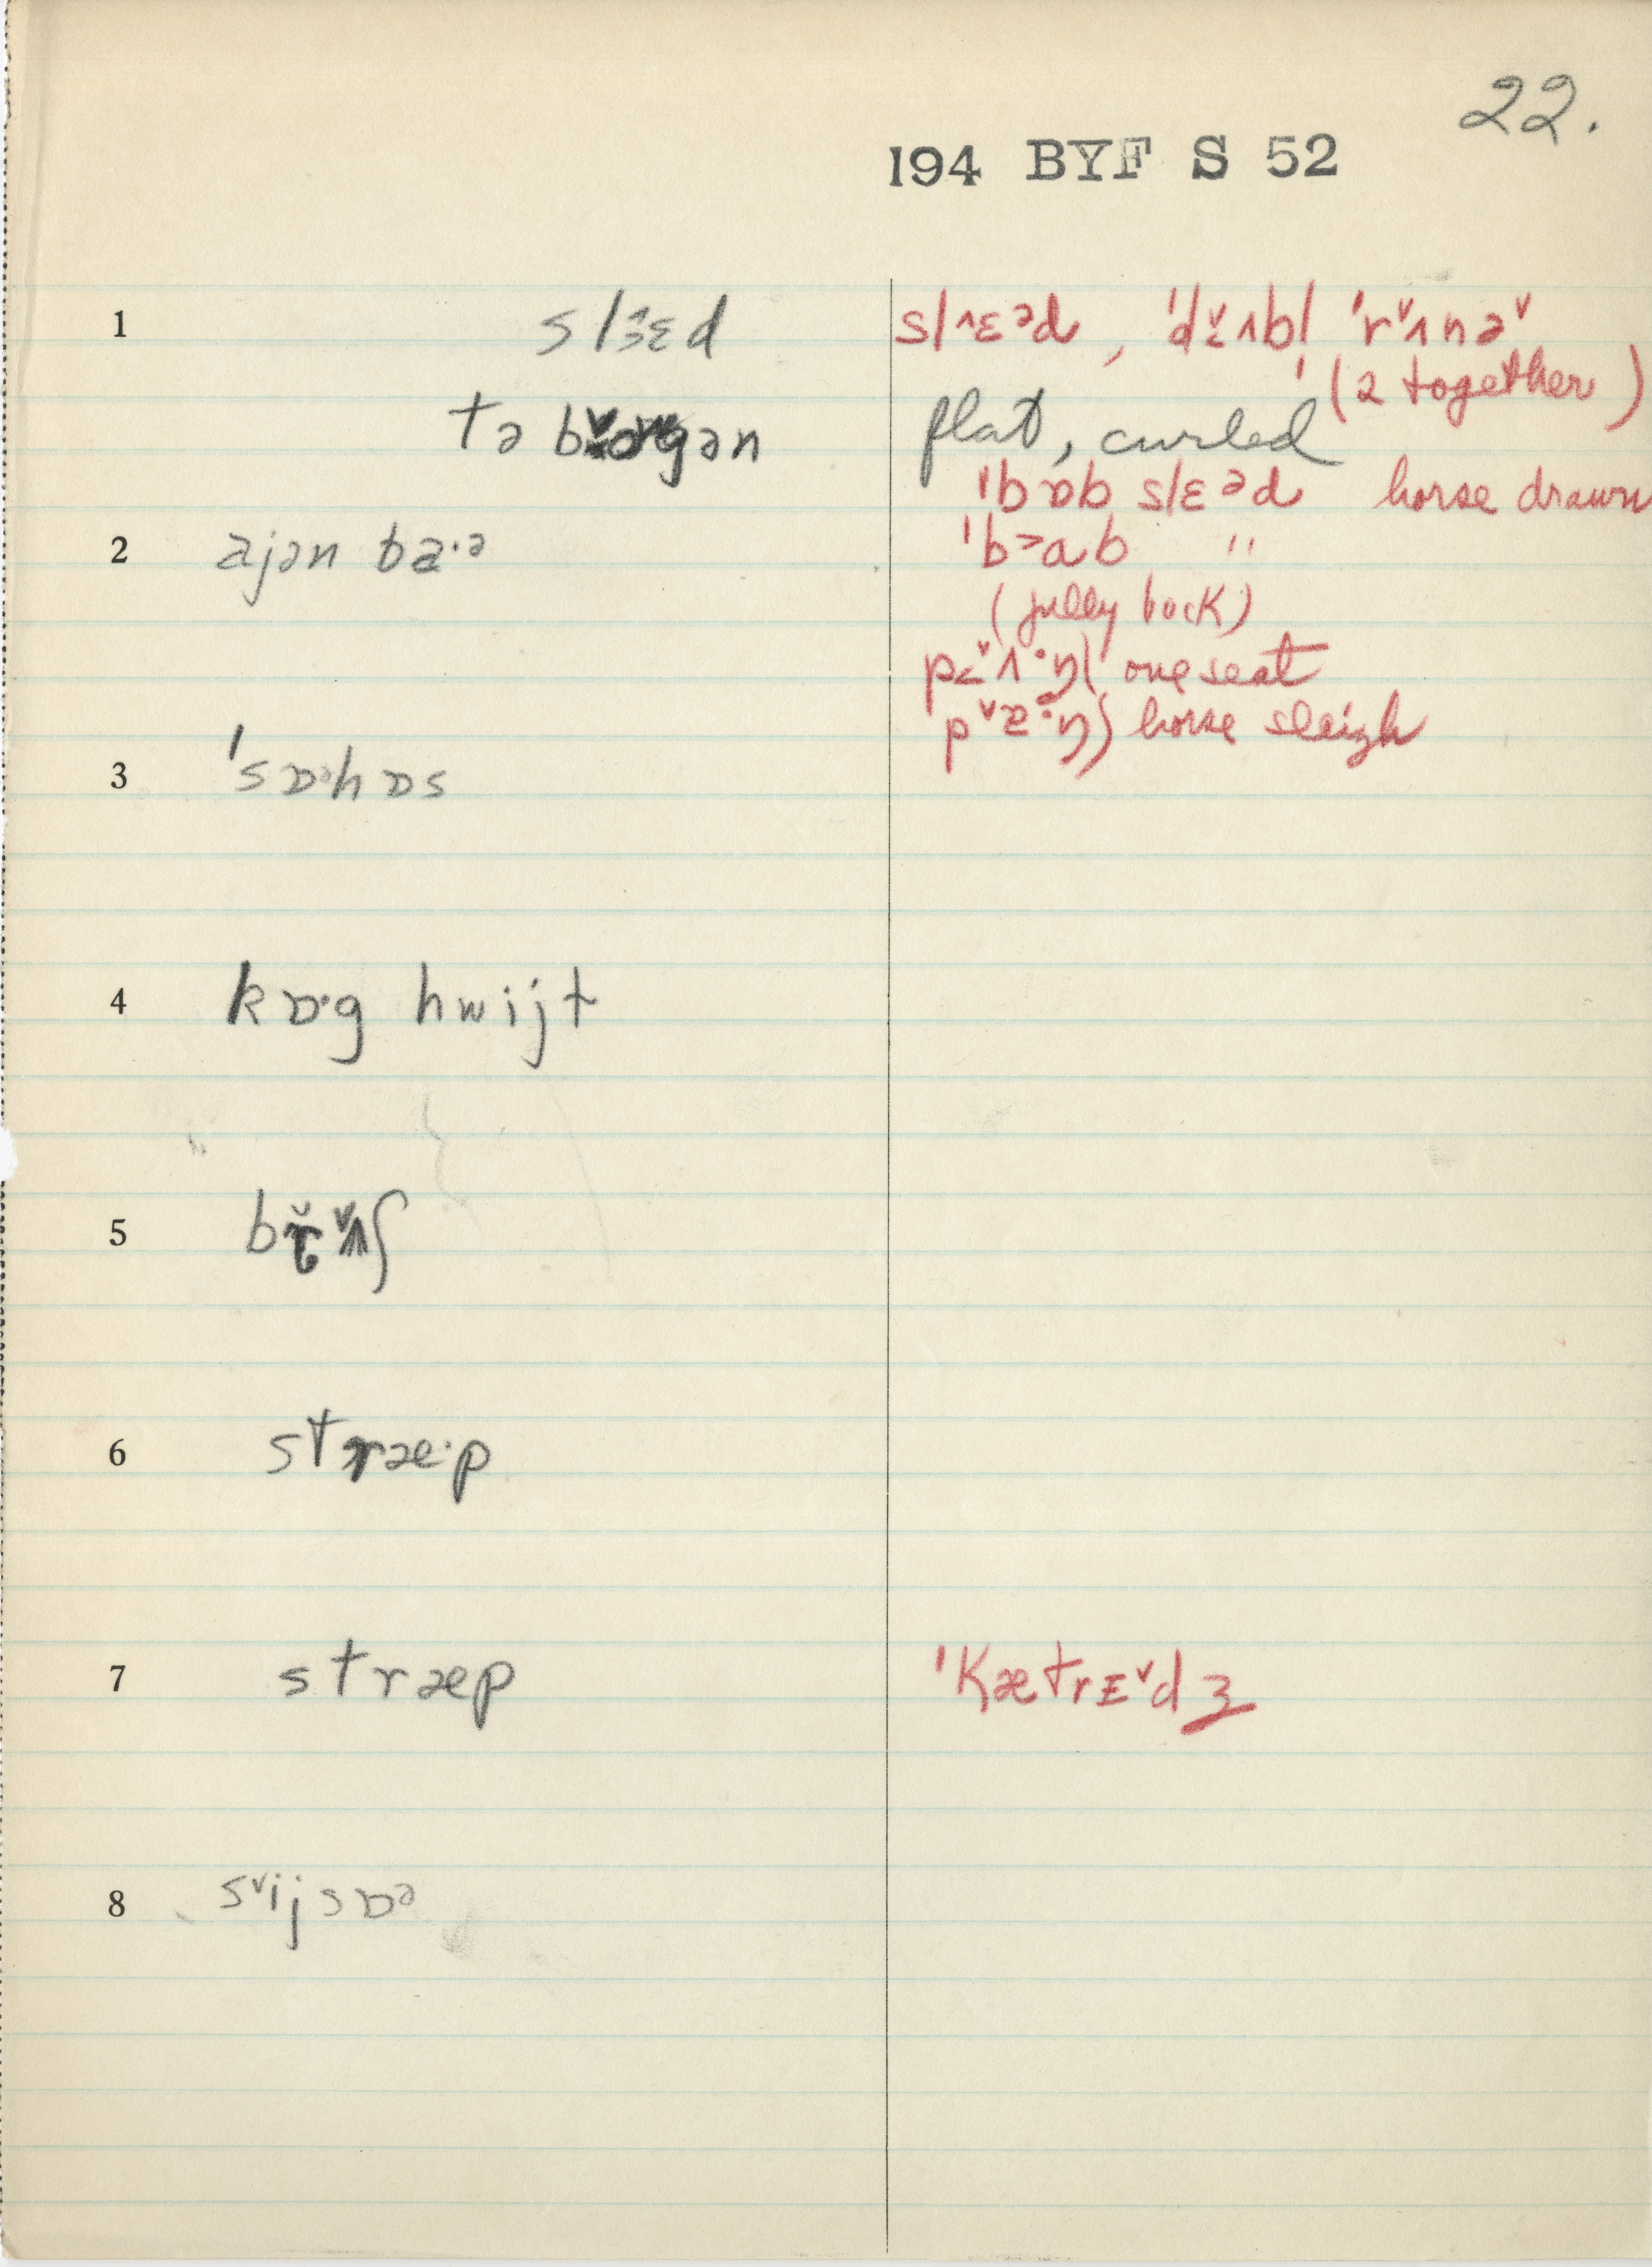 22.
194 BYF S 52
1 slɜ̂ɛd slˆɛᵊd, ˈd˅ɪʌbl̩ ˈr˅ʌnə˅
(2 together)
tə b˅ɔrgən flat, curled
ˈbɒb slɛᵊd horse drawn
2 ajən ba·ə ˈb>ab "
(fully back)
p<˅ʌ·ŋ( one seat
p˅ɐ·ŋ) horse sleigh
3 ˈsɒ·hɒs
4 kɒ·g hwijt
5 b ʃ
6 stræ·p
7 stræp ˈKætrE˅dʒ
8 s˅ijsɒᵊ